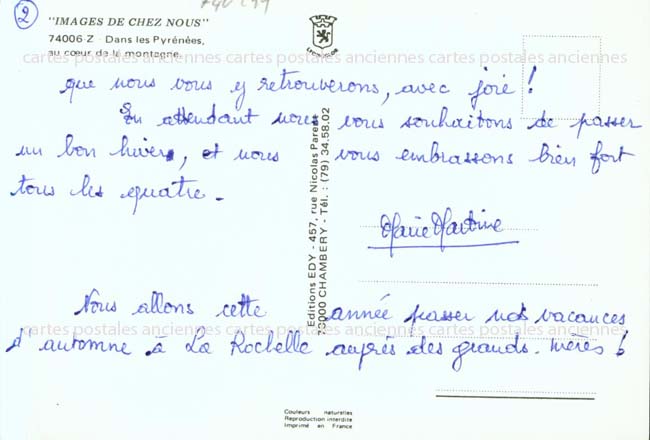 2
"IMAGES DE CHEZ NOUS"
74006-Z - Dans les Pyrénées,
au cœur de la montagne.
LYONCOLOR
cartes postales anciennes cartes postales anciennes cartes postales anciennes
que nous vous y retrouverons, avec joie !
En attendant nous vous souhaitons de passer
un bon hiver, et nous vous embrassons bien fort
tous les quatre.
Marie Martine
Nous allons cette année passer nos vacances
d'automne à La Rochelle auprès des grands-mères !
cartes postales anciennes cartes postales anciennes cartes postales anciennes
Editions EDY - 457, rue Nicolas Parent
73000 CHAMBERY - Tél. : (79) 34.58.02
Couleurs naturelles
Reproduction interdite
Imprimé en France